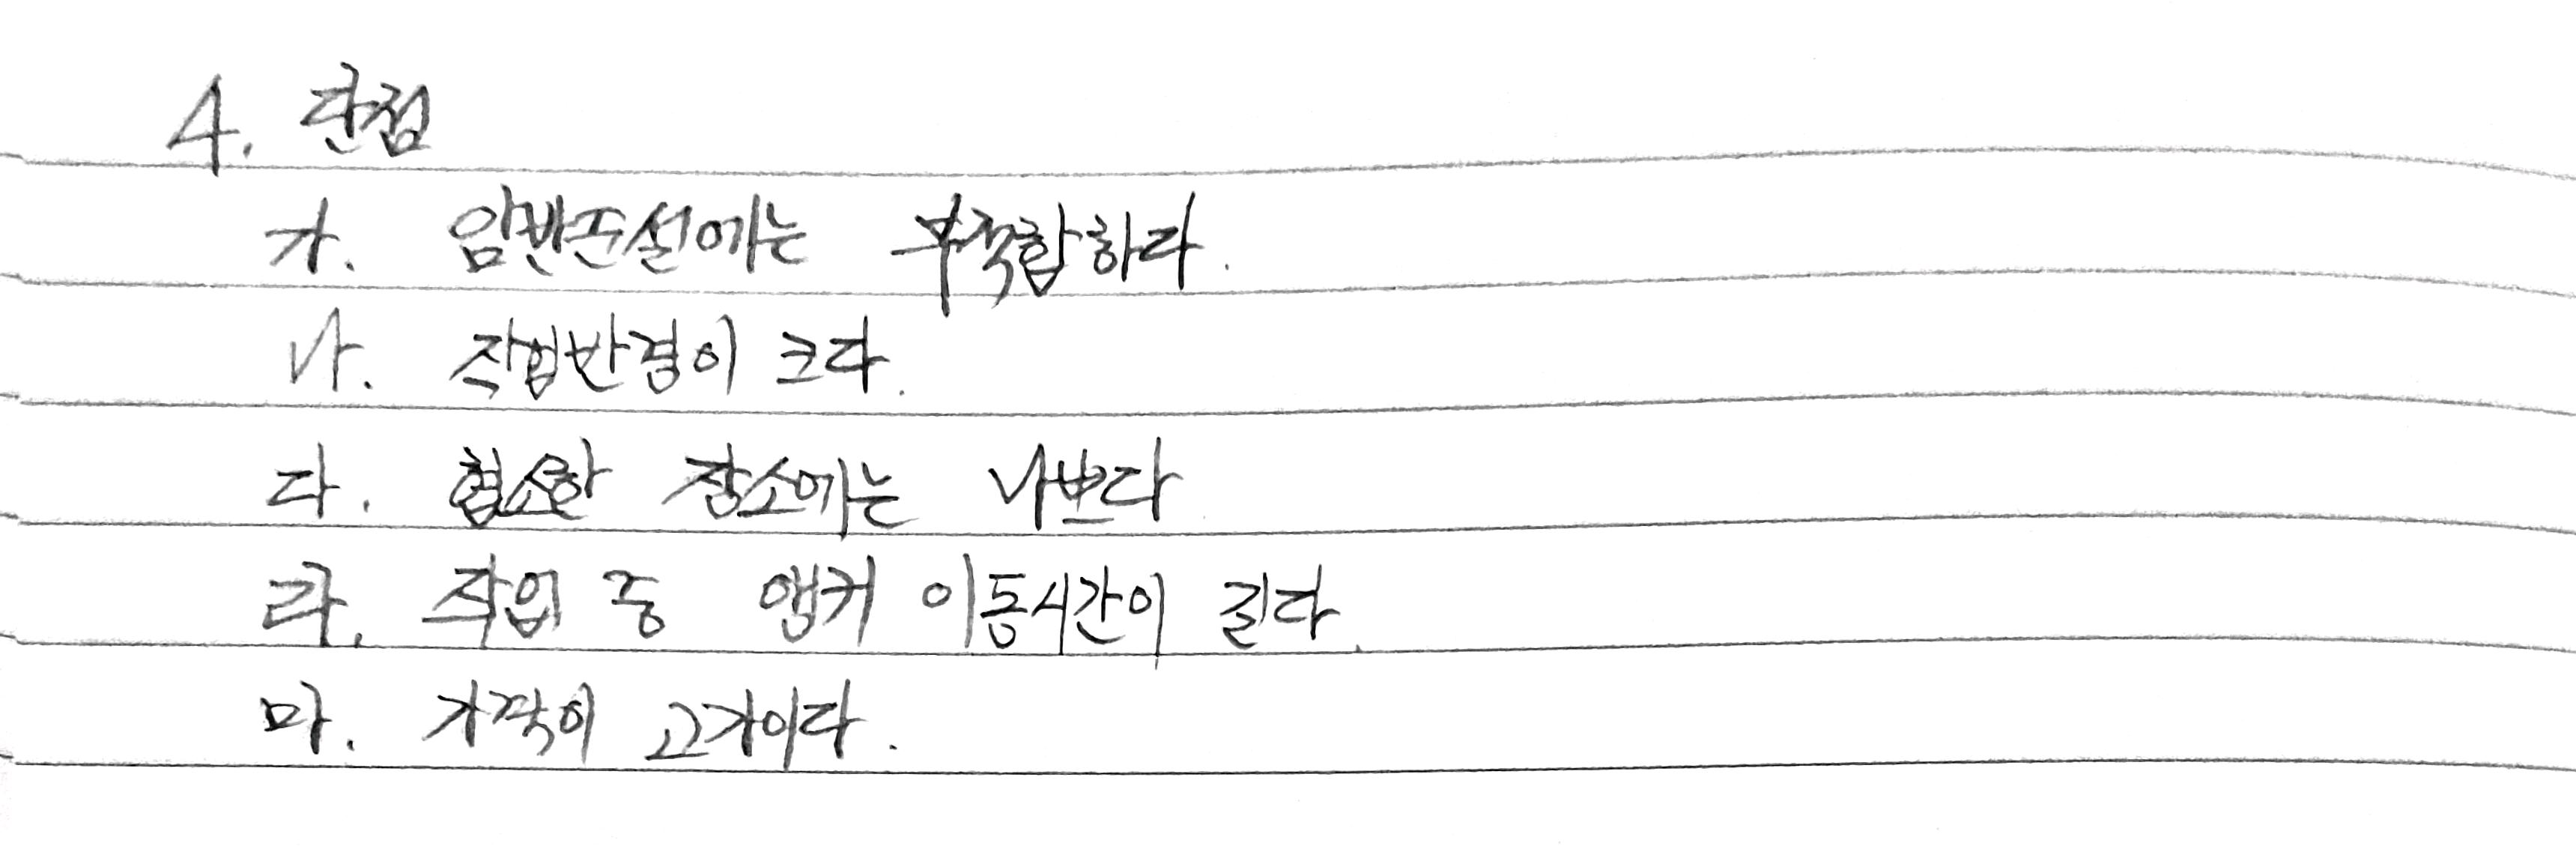 4. 단점
가. 암반준설에는 부적합하다.
나. 작업반경이 크다.
다. 협소한 장소에는 나쁘다
라. 작업 중 앵커 이동시간이 길다.
마. 가격이 고가이다.